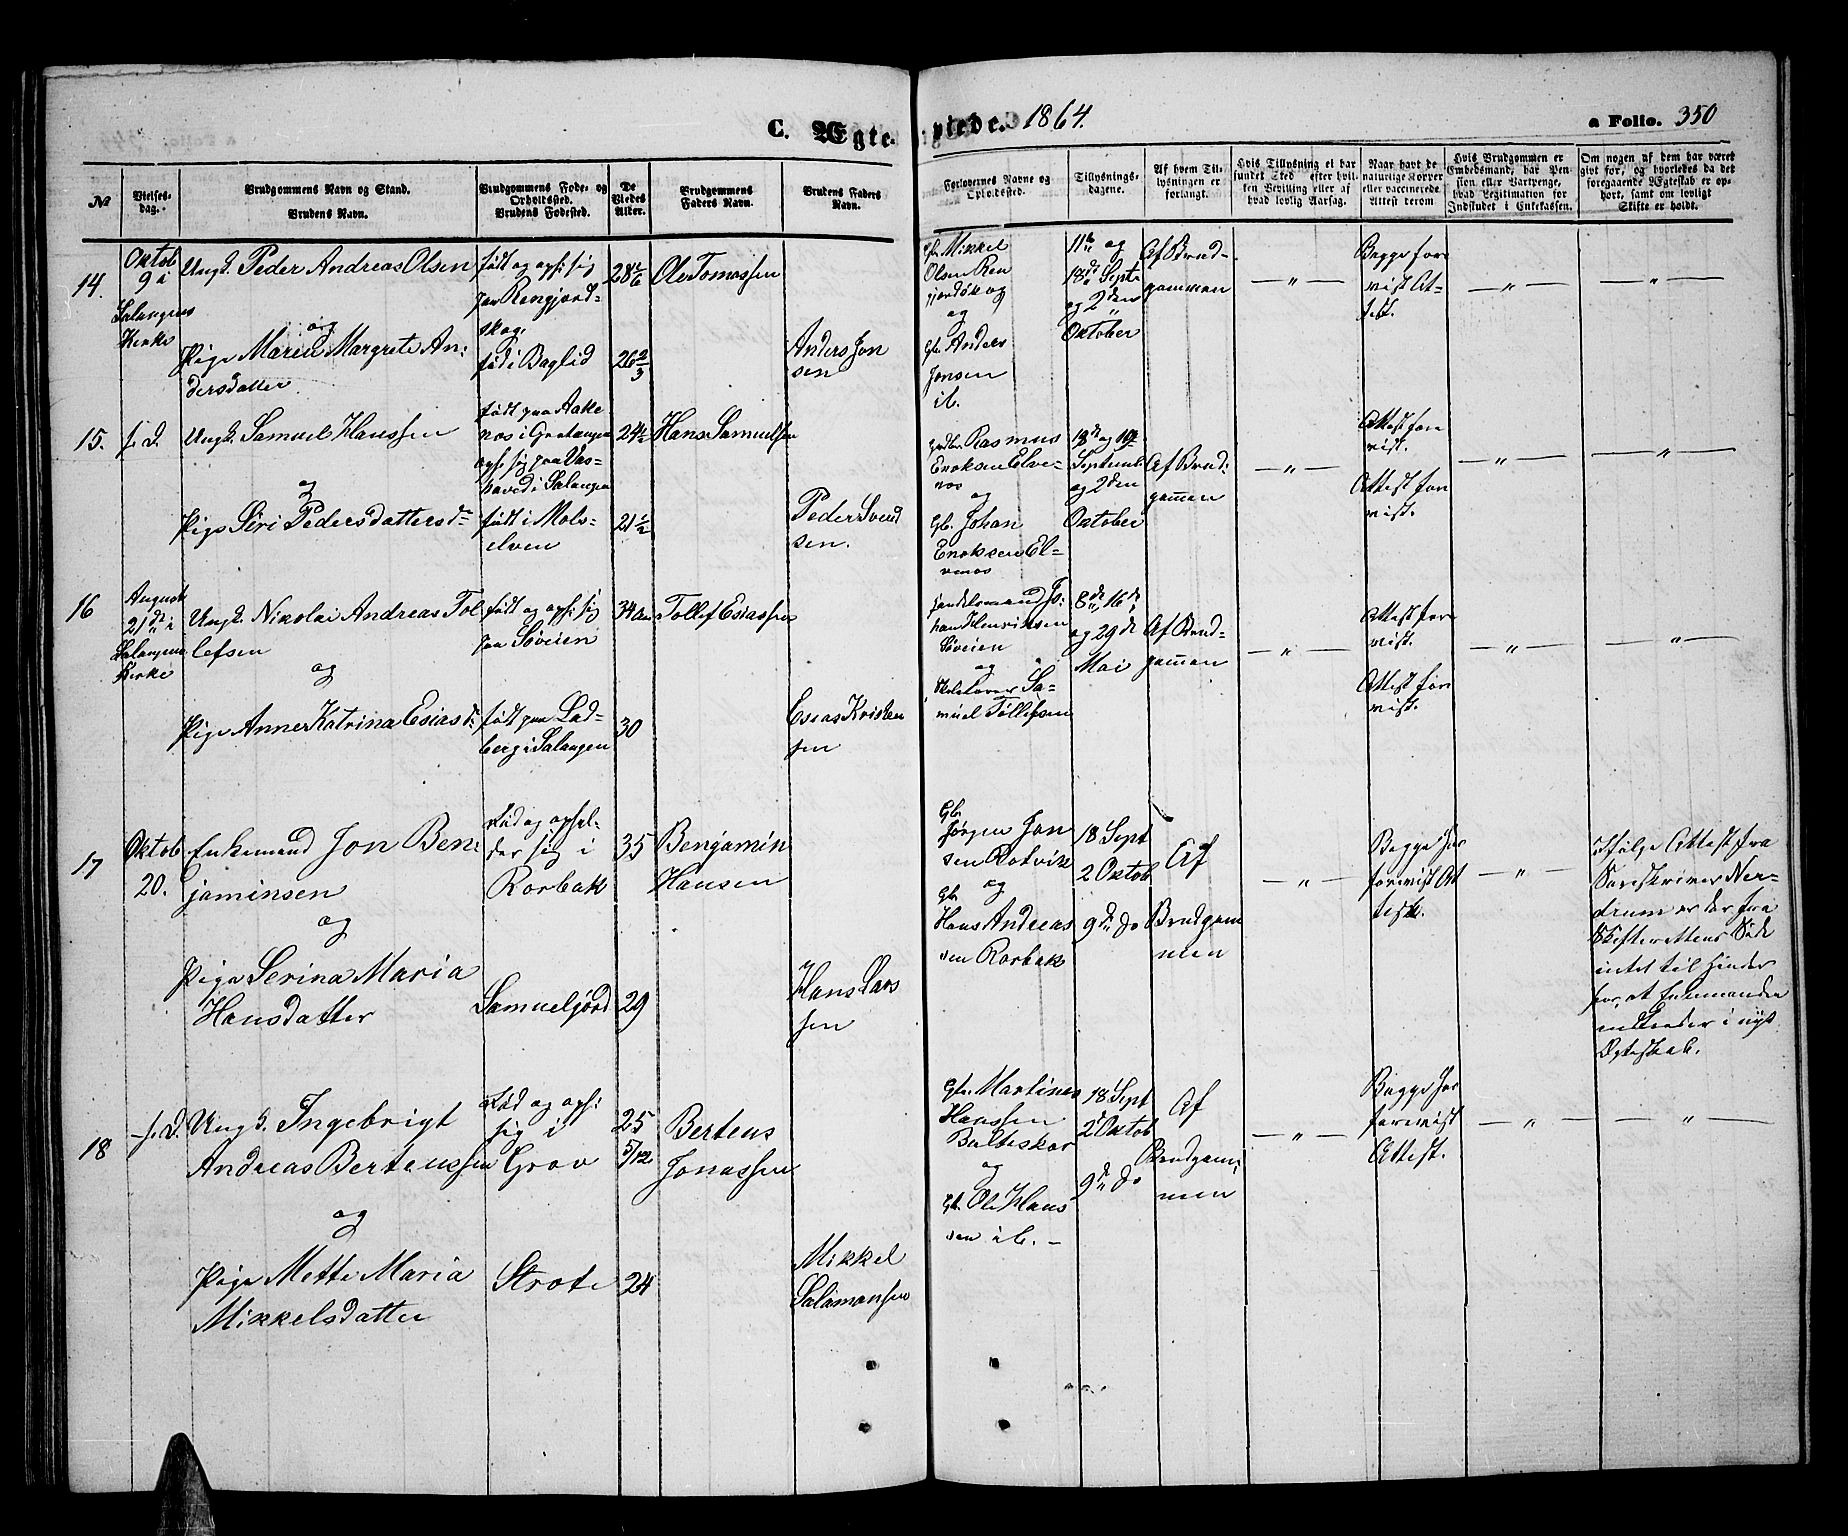 C. Ægteviede. 1864.
a Folio. 350
No
Vielses-
dag.
Brudgommens Navn og Stand.
Brudens Navn.
Brudgommens Føde- og
Opholtssted.
Brudens Fødested.
De
Viedes
Alder.
Brudgommens
Faders Navn.
Brudens Faders
Navn.
Forlovernes Navne og
Opholdssted.
Tillysnings-
dagene.
Af hvem Til-
lysningen er
forlangt.
Hvis Tillysning ei har
fundet Sted, efter hvil-
ken Bevilling eller af
hvad lovlig Aarsag.
Naar havt de
naturlige Kopper
eller vaccinerede.
Attest derom
Hvis Brudgommen er
Embedsmand, har Pen-
sion eller Vartpenge,
hvad Legitimation for
Indskudet i Enkekassen.
Om nogen af dem har været
gift før, og hvorledes da det
foregaaende Ægteskab er op-
hørt, samt om lovligt
Skifte er holdt.
14.
Oktob
9 i
Salangens
Kirke
Ungk. Peder Andreas Olsen
og
Pige Maren Margrete An-
dersdatter
født og oph: sig
paa Rengjord-
skog.
født i Baglid
28 1/6
26 2/3
Ole Tomassen
Anders Jon
sen
Gb. Mikkel
Olsen Ren
gjordsk og
og
Gb. Anders
Jonsen
ib.
11te og
18de Sept
og 2den
Oktober
Af Brud-
gommen
— " —
Begge fore
vist At-
test.
— " —
— " —
15.
s. D.
Ungk. Samuel Hanssen
og
Pige Siri Pedersdatter
født paa Aake
nes i Gratangen
oph sig paa Vas-
haved i Salangen
født i Mals-
elven
24 1/2
21 1/2
Hans Samuelsen
Peder Svend
sen.
Rasmus
Enoksen Elve-
nes
og
Gb. Johan
Enoksen El-
venes
Septemb.
og 2den
Oktober
Af Brud-
gommen
— " —
Attest fore
vist.
Attest fore
vist.
— " —
— " —
16
August
21de i
Salangens
Kirke
Ungk. Nikolai Andreas Tol
lefsen
og
Pige Anne Katrina Esiasd:
født og oph: sig
paa Søveien
født paa Lad-
berg i Salangen
34 Aar
30
Tollef Esiassen
Esias Kristen
sen
Handelsmand Jo-
han Henriksen
Søveien
og
Skolelærer Sa-
muel Tollefsen
8de, 16de
og 29de
Mai
Af Brud-
gommen
— " —
Attest fore
vist.
Attest fore
vist.
— " —
— " —
17
Oktob
20.
Enkemand Jon Ben-
jaminsen
og
Pige Serina Maria
Hansdatter
Fød og ophol-
der sig i
Rorbak
Samueljord
35
29
Benjamin
Hansen
Hans Lars
sen
Gb.
Jørgen Jon
sen Rotvik
og
Gb.
Hans Andreas
sen Rorbak
18 Sept
2 Oktob
9de do
Af
Brudgom
men
— " —
Begge har
forevist At
test.
— " —
Ifølge Attest fra
Sorenskriver Ner-
drum er der fra
Skifterettens Side
intet til Hinder
for, at Enkemanden
indtræder i nyt
Ægteskab.
18
s. D.
Ungk. Ingebrigt
Andreas Bertenssen
og
Pige Mette Maria
Mikkelsdatter
Fød og oph:
sig i
Grov
Strote
25
5/12
24
Bertens
Jonassen
Mikkel
Salamonsen
Gb. Martines
Hanssen
Balteskar
og
Gb. Ole Hans
sen ib. —
18 Sept
2 Oktob
9de do
Af
Brudgom-
men
— " —
Begge har
forevist
Attest.
— " —
— " —